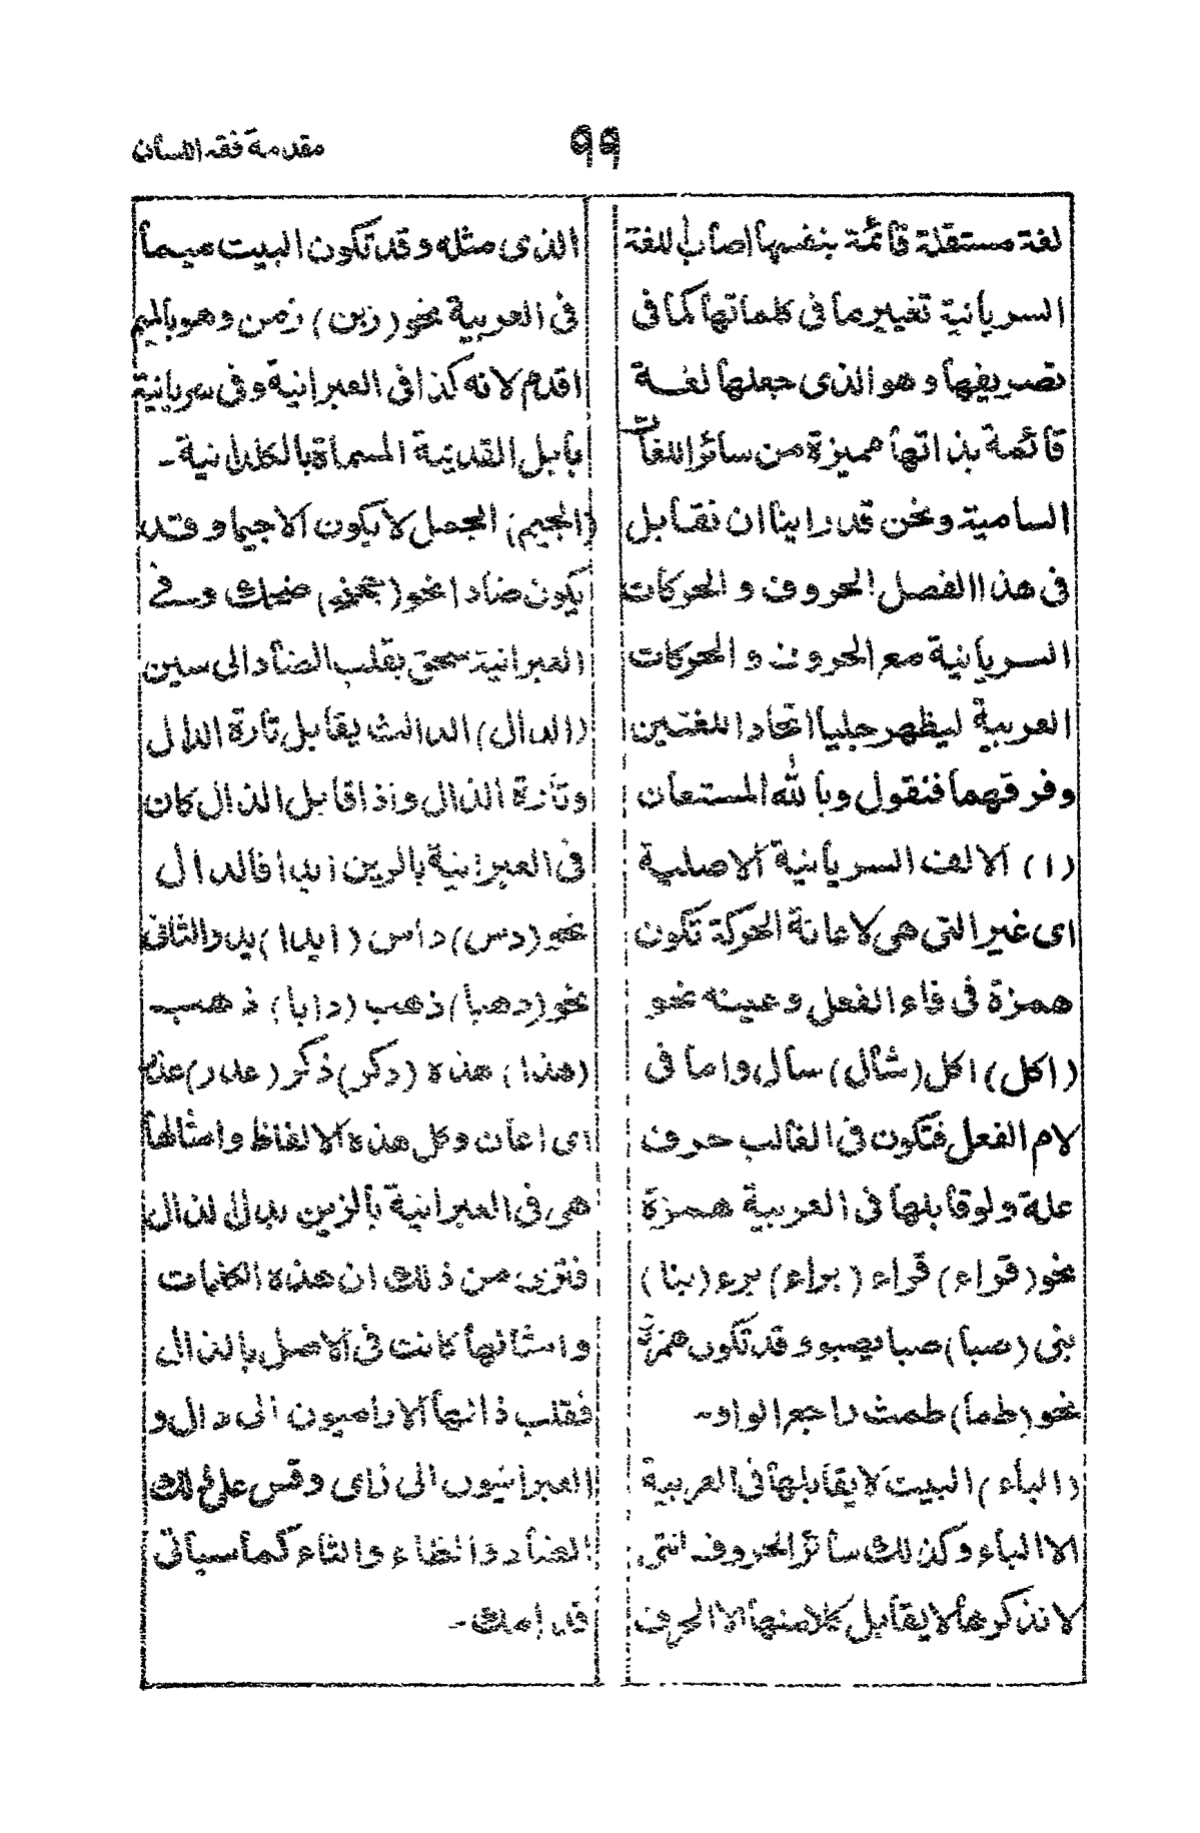 مقدمة فقه اللسان
٩٩
لغة مستقلة قائمة بنفسها اصاب اللغة
السريانية تغيير ما فى كلماتها كما فى
تصريفها وهو الذى جعلها لغة
قائمة بذاتها مميزة من سائر اللغات
السامية ونحن قد راينا ان نقابل
فى هذا الفصل الحروف و الحركات
السريانية مع الحروف و الحركات
العربية ليظهر جليا اتحاد اللغتين
وفرقهما فنقول وبالله المستعان
(ا) الالف السريانية الاصلية
اى غير التى هى لاعانة الحركة تكون
همزة فى فاء الفعل وعينه نحو
(اكل) اكل (شأل) سأل واما فى
لام الفعل فتكون فى الغالب حرف
علة ولو قابلها فى العربية همزة
نحو (قراء) قراء (براء) برء (بنا)
بنى (صبا) صبا يصبو وقد تكون همزة
نحو (طما) طمث راجع الواو-
(الباء) البيت لا يقابلها فى العربية
الا الباء وكذلك سائر الحروف التى
لا نذكرها لا يقابل كلا منها الا الحرف
الذى مثله وقد تكون البيت ميما
فى العربية نحو (زبن) زمن وهو بالميم
اقدم لانه كذا فى العبرانية وفى سريانية
بابل القديمة المسماة بالكلدانية-
(الجيم) الجمل لا يكون الا جيما وقد
يكون ضادا نحو ضحك وفى
العبرانية سحق بقلب الضاد الى سين
(الدال) الدالث يقابل تارة الدال
وتارة الذال واذا قابل الذال كان
فى العبرانية بالزين ابدا فالدال
نحو (دس) داس (ايدا) يد والثانى
نحو (دهبا) ذهب (دابا) ذهب
(هدا) هذه (دكر) ذكر (عدر) عذر
اى اعان وكل هذه الالفاظ وامثالها
هى فى العبرانية بالزين بدال الذال
فترى من ذلك ان هذه الكلمات
وامثالها كانت فى الاصل بالذال
فقلب ذالها الاراميون الى دال و
العبرانيون الى زاى وقس على ذلك
الضاد والظاء والثاء كما سياتى
قدامك-